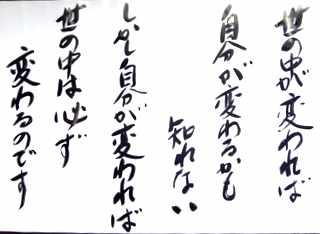 世の中が変われば
自分が変わるかも
知れない
しかし自分が変われば
世の中は必ず
変わるのです